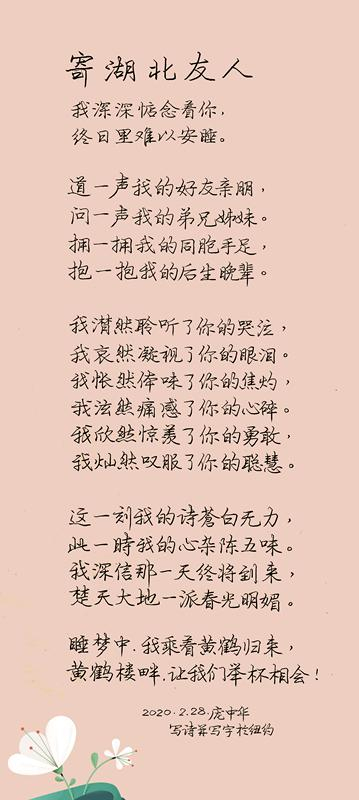 寄湖北友人
我深深惦念着你，
终日里难以安睡。
道一声我的好友亲朋，
问一声我的弟兄姊妹。
拥一拥我的同胞手足，
抱一抱我的后生晚辈。
我潸然聆听了你的哭泣，
我哀然凝视了你的眼泪。
我怅然体味了你的焦灼，
我泫然痛感了你的心碎。
我欣然惊羡了你的勇敢，
我灿然叹服了你的聪慧。
这一刻我的诗苍白无力，
此一時我的心杂陈五味。
我深信那一天终将到来，
楚天大地一派春光明媚。
睡梦中.我乘着黄鹤归来，
黄鹤楼畔.让我们举杯相会！
2020.2.28.庞中华
写诗并写字於纽约